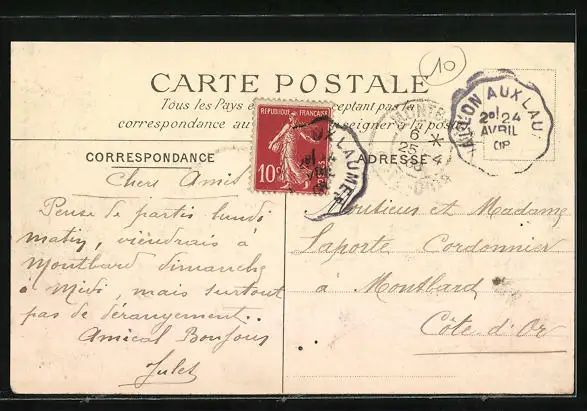 10
CARTE POSTALE
Tous les Pays ceptant pas la
correspondance au seigner à la poste
CORRESPONDANCE
ADRESSE
REPUBLIQUE FRANÇAISE
10c
LAUMES
AUX LAU
2e 24
AVRIL
OP
MONTB
6 *
25 4
Chers Amis
Pense de partir lundi
matin, viendrais à
Montbard dimanche
à Midi, mais surtout
pas de dérangement..
Amical Bonjour
Jules
Monsieur et Madame
Laporte Cordonnier
à Montbard
Côte-d'Or